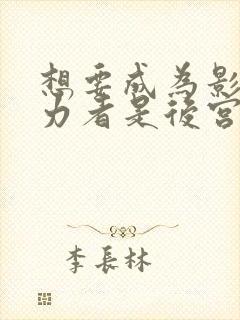 想要成為影
力者是後宮
李長林